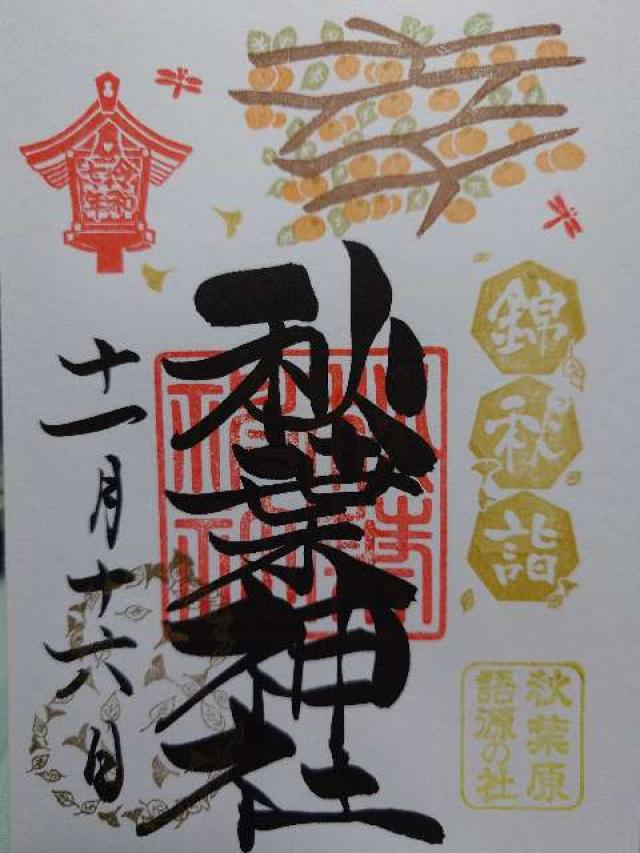 錦秋詣
秋葉原
語源の社
秋葉神社
令和
七年
十一月十六日